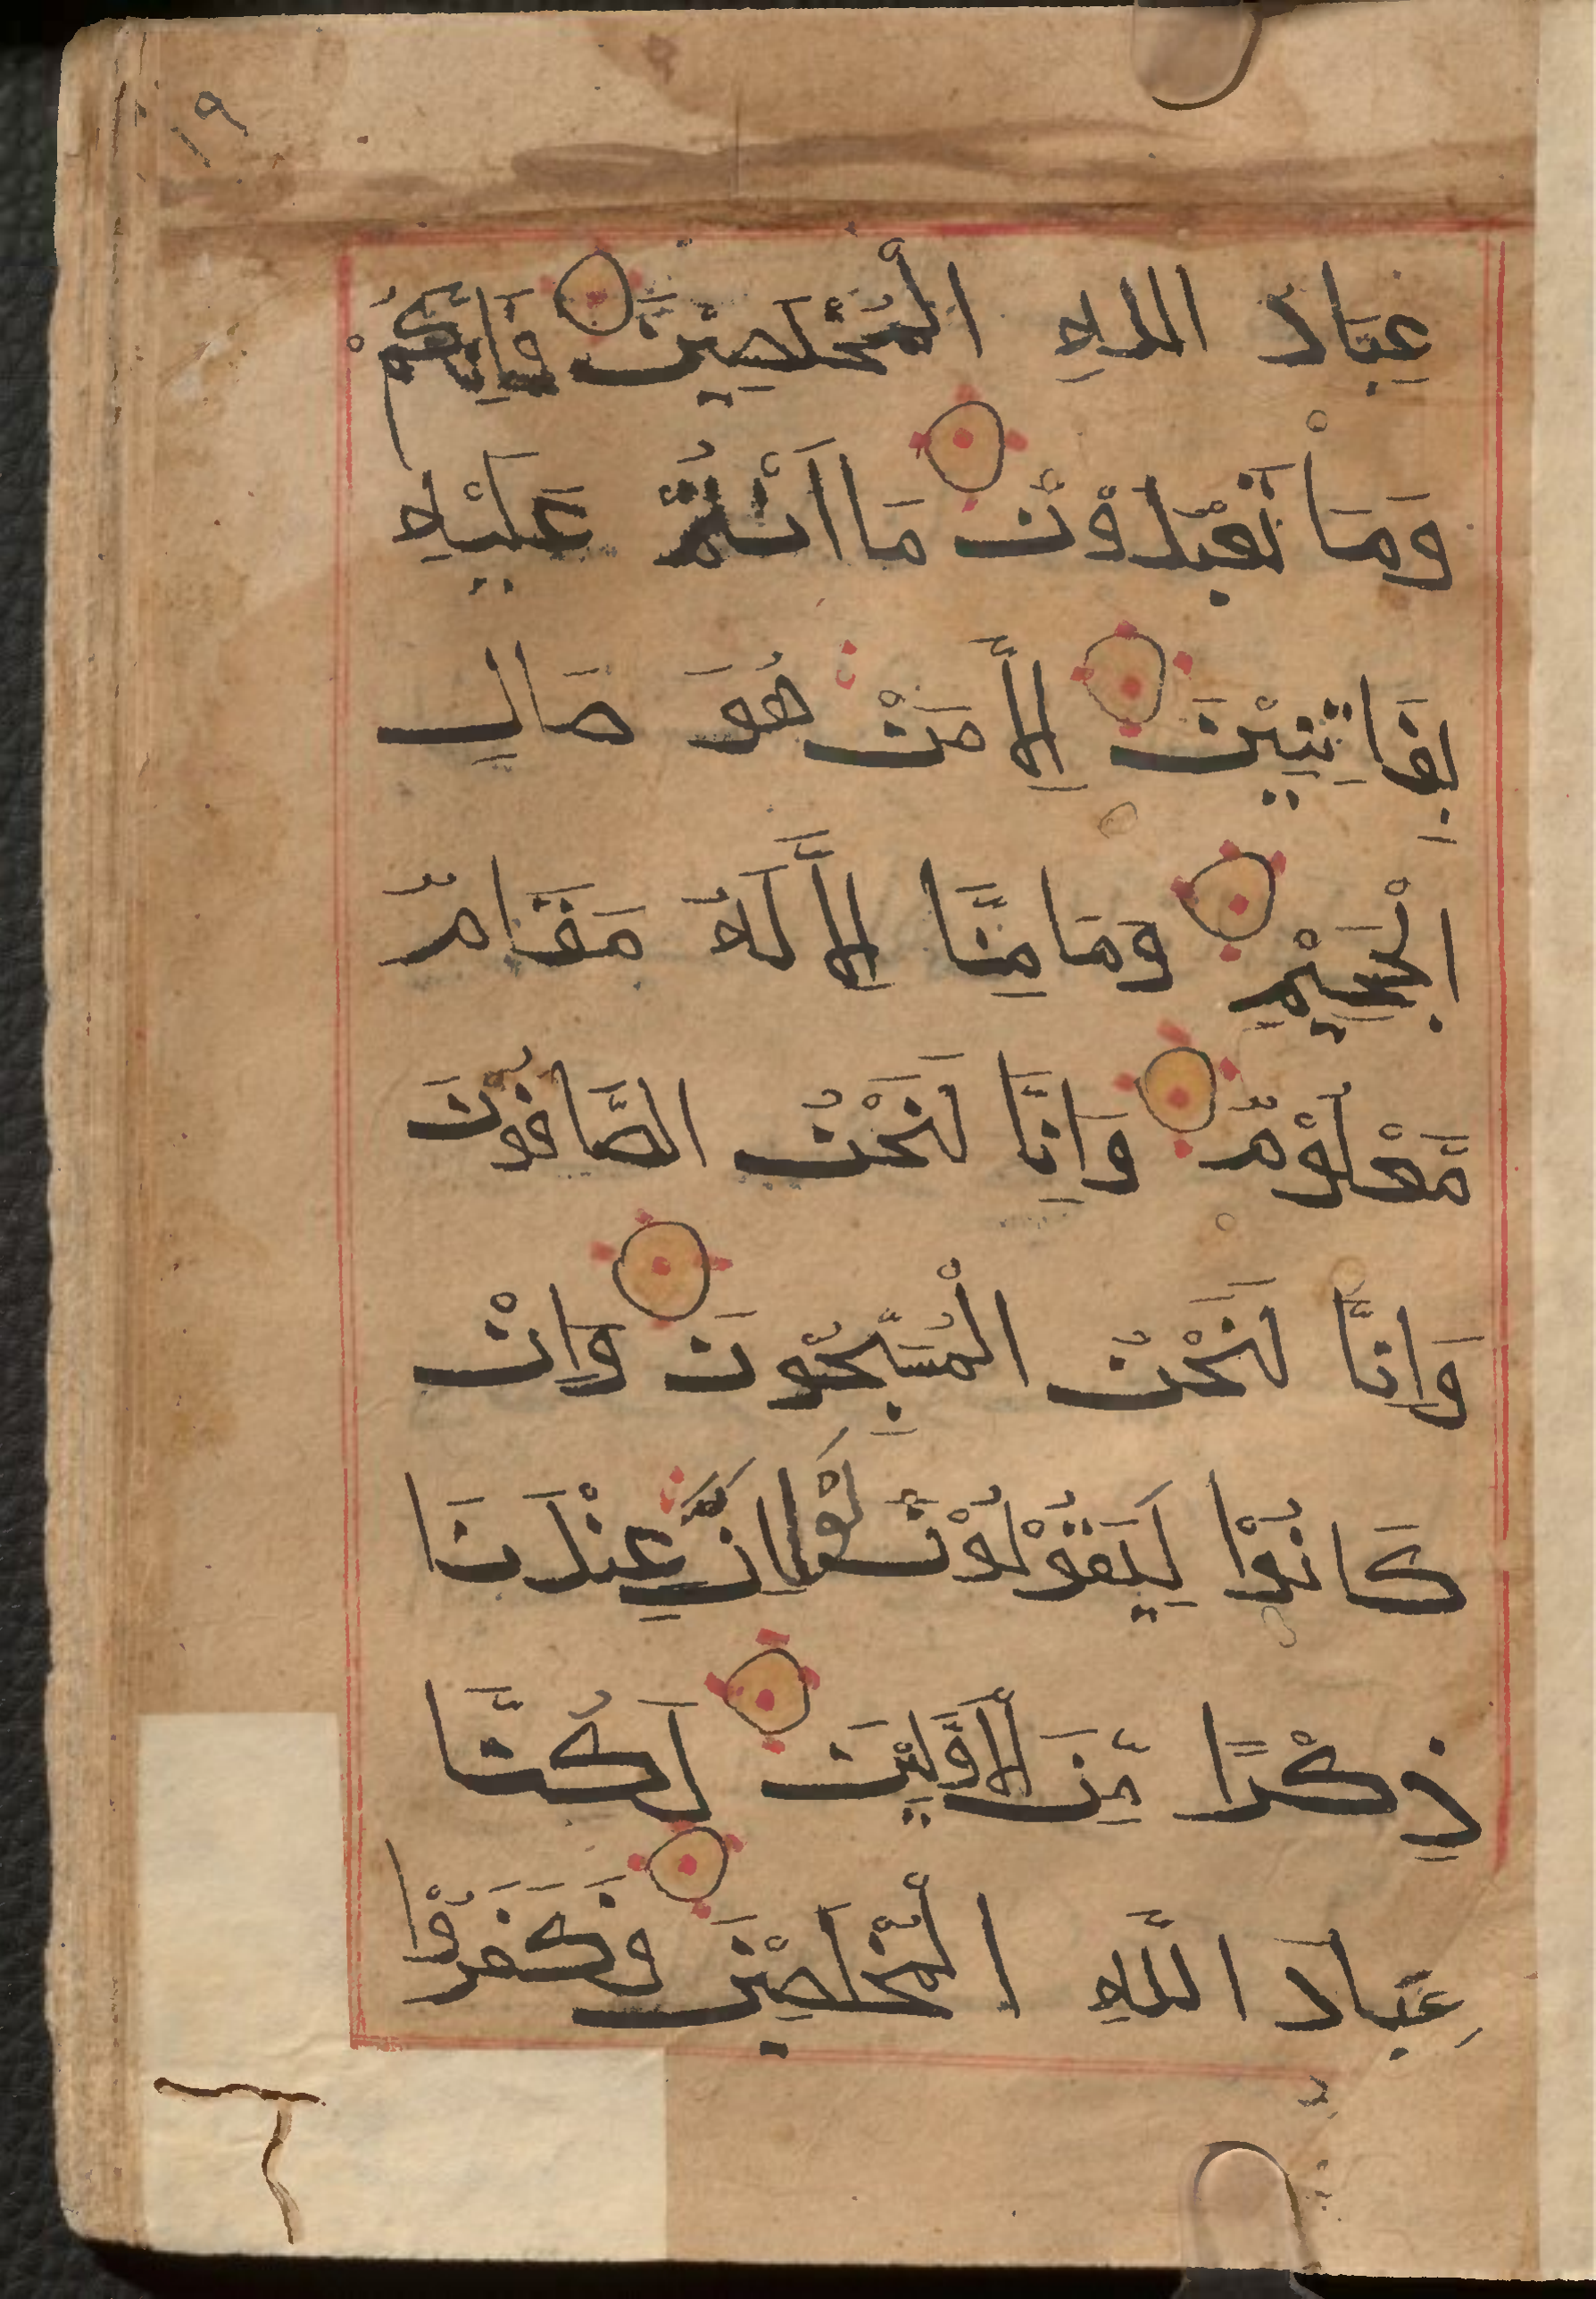 ١٩
عِبَادَ اللهِ الْمُخْلَصِيْنَ فَاِنَّكُمْ
وَمَا تَعْبُدُوْنَ مَا اَنْتُمْ عَلَيْهِ
بِفَاتِنِيْنَ اِلَّا مَنْ هُوَ صَالِ
الْجَحِيْمِ وَمَا مِنَّا اِلَّا لَهُ مَقَامٌ
مَّعْلُوْمٌ وَاِنَّا لَنَحْنُ الصَّافُّوْنَ
وَاِنَّا لَنَحْنُ الْمُسَبِّحُونَ وَاِنْ
كَانُوْا لَيَقُوْلُوْنَ لَوْ اَنَّ عِنْدَنَا
ذِكْرًا مِّنَ الْاَوَّلِيْنَ لَكُنَّا
عِبَادَ اللَّهِ الْمُخْلَصِيْنَ فَكَفَرُوْا